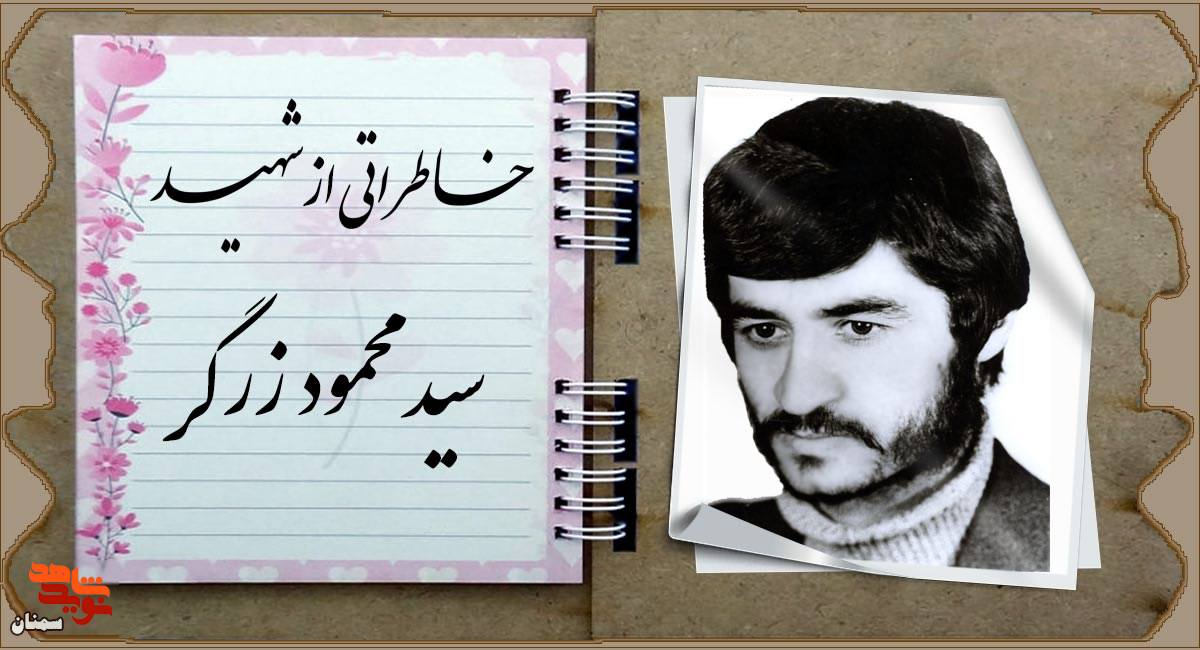 خاطراتی از شهید
سید محمود زرگر
نوید شاهد
سمنان